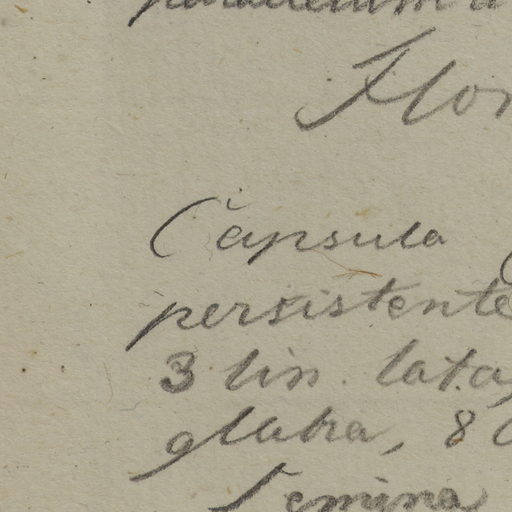 Flor
Capsula
persistente
3 lin. lata,
glabra, 8
Semina